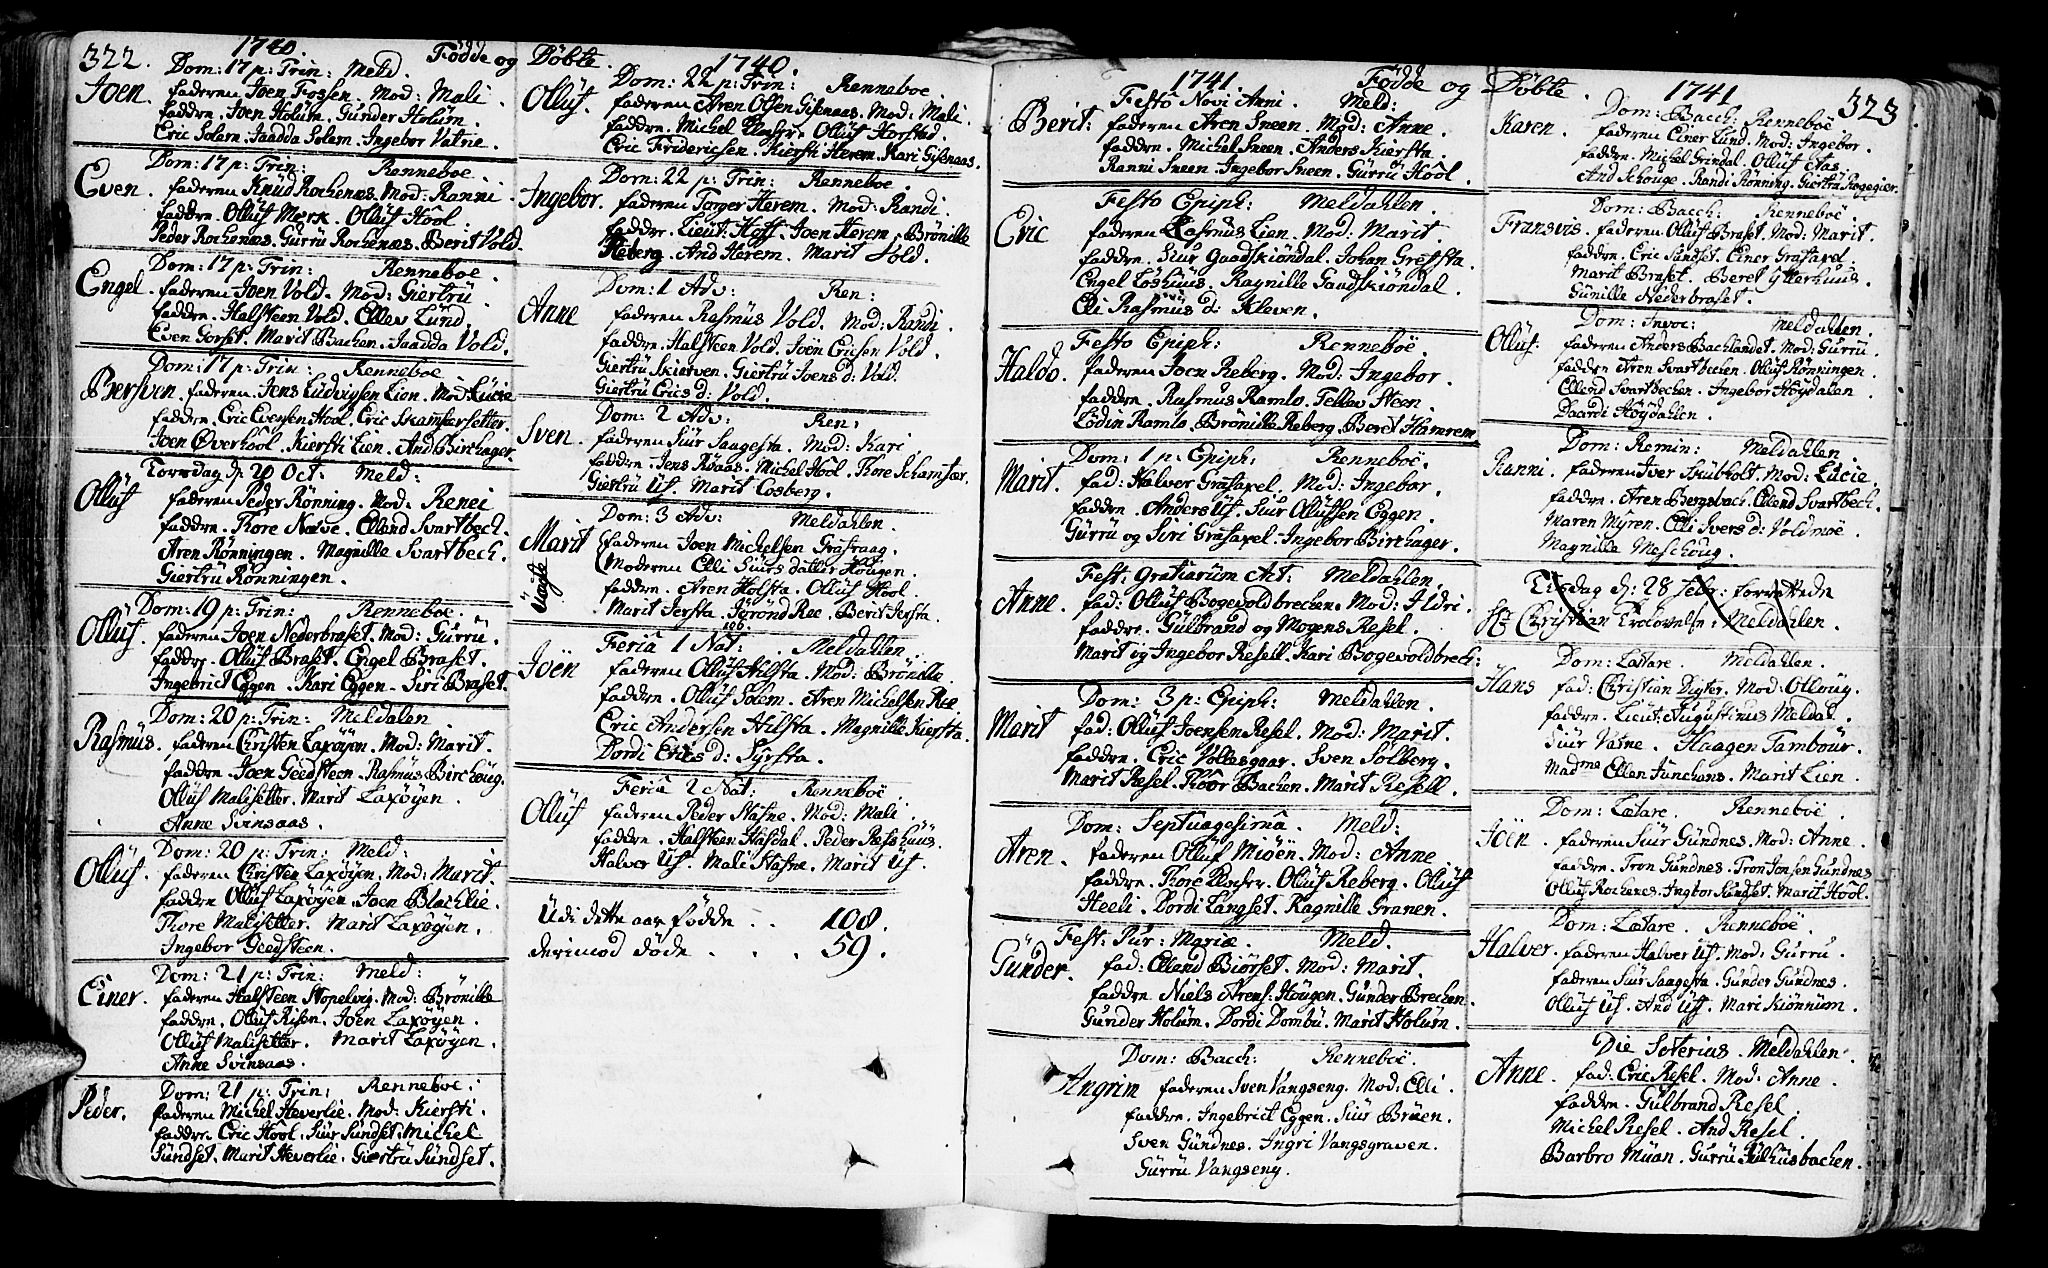 322. 1740. Födde og Döbte. 1740.
Dom: 17 p: Trin: Meld.
Joen. faderen Joen Fossen. Mod: Mali.
faddre. Joen Holum. Gunder Holum.
Eric Solem. Jaadda Solem. Ingebor Vatne.
Dom: 17 p: Trin: Renneboe.
Even. faderen Knud Rochenæs. Mod: Ranni.
faddre. Olluf Mærk. Olluf Hool.
Peder Rochenæs. Gurru Rochenæs. Berit Vold.
Dom: 17 p: Trin: Renneboe.
Engel. faderen Joen Vold. Mod: Giertru.
faddre. Halsteen Vold. Ellev Lund.
Even Gorset. Marit Bachen. Jaadda Vold.
Dom: 17 p: Trin: Renneboe.
Bersven. faderen Jens Ludvigsen Lien. Mod: Lucie
faddre. Eric Evensen Hool. Eric Skamfersetter.
Joen Overhool. Kiersti Lien. And Birchager.
Torsdag d. 20 Oct: Meld:
Olluf faderen Peder Rönning. Mod: Renei
faddre. Thore Næve. Elland Svartbech.
Aren Rönningen. Magnille Svartbech.
Giertru Rönningen.
Dom: 19 p: Trin: Renneboe.
Olluf. faderen Joen Nederbraset. Mod: Gurru.
faddre. Olluf Braset. Engel Braset.
Ingebrict Eggen. Kari Eggen. Siri Braset.
Dom: 20 p: Trin: Meldalen
Rasmus. faderen Christen Laxöyen. Mod: Marit.
faddre. Joen Geedsteen. Rasmus Birchoug.
Olluf Malisetter. Marit Laxöyen.
Anne Svinsaas.
Dom: 20 p: Trin: Meld:
Olluf. faderen Christen Laxöyen. Mod: Marit.
faddre Olluf Laxöyen. Joen Blachlie.
Thore Malisetter. Marit Laxöyen.
Ingebor Geedsteen.
Dom: 21 p: Trin: Meld:
Einer. faderen Halsteen Stopelvig. Mod: Brönille
faddre. Olluf Risen. Joen Laxöyen.
Olluf Malisetter. Marit Laxöyen.
Anne Svinsaas.
Dom: 21 p: Trin: Renneboe.
Peder. faderen Michel Heverlie. Mod: Kiersti.
faddre. Eric Hool. Siur Sundset. Michel
Sundset. Marit Heverlie. Giertru Sundset.
Dom: 22 p: Trin: Renneboe.
Olluf. faderen Aren Olsen Gisenaas. Mod: Mali.
faddre. Michel Olluf Horstad.
Eric Friderichsen. Kiersti Herem. Kari Gisenaas.
Dom: 22 p: Trin: Renneboe.
Ingebor. faderen Torger Herem. Mod: Randi.
faddre. Lieut: Hoff. Joen Herem. Brönille
Reberg. And Herem. Marit Vold.
Dom: 1 Adv: Ren:
Anne faderen Rasmus Vold. Mod: Randi.
faddre. Halsteen Vold. Joen Ericsen Vold.
Giertru Skierven. Giertru Joens d: Vold.
Giertru Erics d: Vold.
Dom: 2 Adv: Ren:
Sven. faderen Siur Saagesta. Mod: Kari
faddre. Jens Aaas. Michel Hool. Thore Schamfær.
Giertru Uf. Marit Cosberg.
Dom: 3 Adv: Meldahlen.
Marit faderen Joen Michelsen Grafraag.
Uægte Moderen Elli Siurs datter Hougen.
faddre. Aren Holsta. Olluf Hool.
Marit Jersta. Jörond Ree. Berit Jersta.
Feria 1 Nat: Meldahlen.
Joen faderen Olluf Hilsta. Mod: Brönille.
faddre. Olluf Solem. Aren Michelsen Ree
Eric Andersen Hilsta. Magnille Kiersta.
Dordi Erics d: Syrsta.
Feria 2 Nat: Renneboe
Olluf faderen Peder Stafne. Mod: Mali.
faddre. Halsteen Hasdal. Peder Ræshuus.
Halver Uf. Mali Stafne. Marit Uf.
Udi dette aar födde . . 108.
derimod döde . . . 59.
1741. Födde og Döbte. 1741. 323
Festo Novi Anni. Meld:
Berit: faderen Aren Sneen. Mod: Anne.
faddre. Michel Sneen. Anders Kiersta.
Ranni Sneen. Ingebor Sneen. Gurru Hool.
Festo Epiph: Meldahlen.
Eric faderen Rasmus Lien. Mod: Marit.
faddre. Siur Gaadskiöndal. Johan Grefsta.
Engel Löshuus. Ragnille Gaadskiöndal.
Elli Rasmus d: Kleven.
Festo Epiph: Renneboe.
Haldo. faderen Joen Reberg. Mod: Ingebor.
faddre. Rasmus Ramlo. Tellev Steen.
Lödin Ramlo. Brönille Reberg. Beret Hamrem
Dom: 1 p: Epiph: Renneboe.
Marit. fad: Halver Grasaxel. Mod: Ingebor.
faddre. Anders Uf. Siur Ollufsen Eggen.
Gurru og Siri Grasaxel. Ingebor Birchager.
Fest: Gratiarum Act: Meldahlen.
Anne. fad: Olluf Bogevoldbrechen. Mod: Ildri.
faddre. Gulbrand og Mogens Resel.
Marit og Ingebor Resell. Kari Bogevoldbrech:
Dom: 3 p: Epiph: Meldahlen.
Marit fad: Olluf Joensen Resel. Mod: Marit.
faddre. Eric Vollesgaar. Sven Solberg.
Marit Resel. Thoor Bachen. Marit Resell.
Dom: Septuagesima. Meld:
Aren. faderen Olluf Mioen. Mod: Anne
faddre. Thore Olluf Reberg. Olluf
Heeli. Dordi Langset. Ragnille Granen.
Fest: Pur: Mariæ. Meld.
Gunder. fad: Elland Biörset. Mod: Marit.
faddre. Niels Arens: Hougen. Gunder Brechen.
Gunder Holum. Dordi Dombu. Marit Holum.
Dom: Bacch: Renneboe.
Angrim faderen Sven Vangseng. Mod: Elli.
faddre. Ingebrict Eggen. Siur Bruen.
Sven Gundnes. Ingri Vangsgraven.
Gurru Vangseng.
Dom: Bacch: Renneboe
Karen. faderen Einer Lund. Mod: Ingebor.
faddre. Michel Grindal. Olluf Aas.
And Schouge. Randi Rönning. Giertru Rogegier.
Dom: Bacch: Renneboe.
Fransvis. faderen Olluf Braset. Mod: Marit.
faddre. Eric Sandset. Einer Grasaxel.
Marit Braset. Beret Ytterhuus.
Gunille Nederbraset.
Dom: Invoc: Meldahlen.
Olluf. faderen Anders Bachlandet. Mod: Gurru.
faddre Aren Svartbechen. Olluf Rönningen.
Elland Svartbechen. Ingebor Höydalen
Daardi Höydahlen.
Dom: Remin: Meldahlen.
Ranni. faderen Iver Skulholt. Mod: Lucie.
faddre. Aren Bergsbach. Elland Svartbech.
Maren Myren. Elli Ivers d: Voldmoe.
Magnille Meschoug.
Tisdag d: 28 Febr: forrettede
Hr Christian Meldahlen.
Dom: Lætare. Meldahlen.
Hans fad: Christian Digter. Mod: Ollvug.
faddre. Lieut: Augustinus Meldal.
Siur Vatne. Haagen Tambour.
Mad:me Ellen Junchans. Marit Lien.
Dom: Lætare. Renneboe.
Joen. faderen Siur Gundnes. Mod: Anne.
faddre. Tron Gundnes. Tron Jonsen Gundnes
Olluf Rochenes. Ingbor Sundset. Marit Hool.
Dom: Lætare. Renneboe.
Halver. faderen Halver Uf. Mod: Gurru.
faderen Siur Saagesta. Gunder Gundnes.
Olluf Uf. And Uff. Mari Kiönnum.
Die Soterius. Meldahlen.
Anne. fad: Eric Resel. Mod: Anne.
faddre. Gulbrand Resel.
Michel Resel. And Resel.
Barbro Muan. Gurru Julhusbachen.